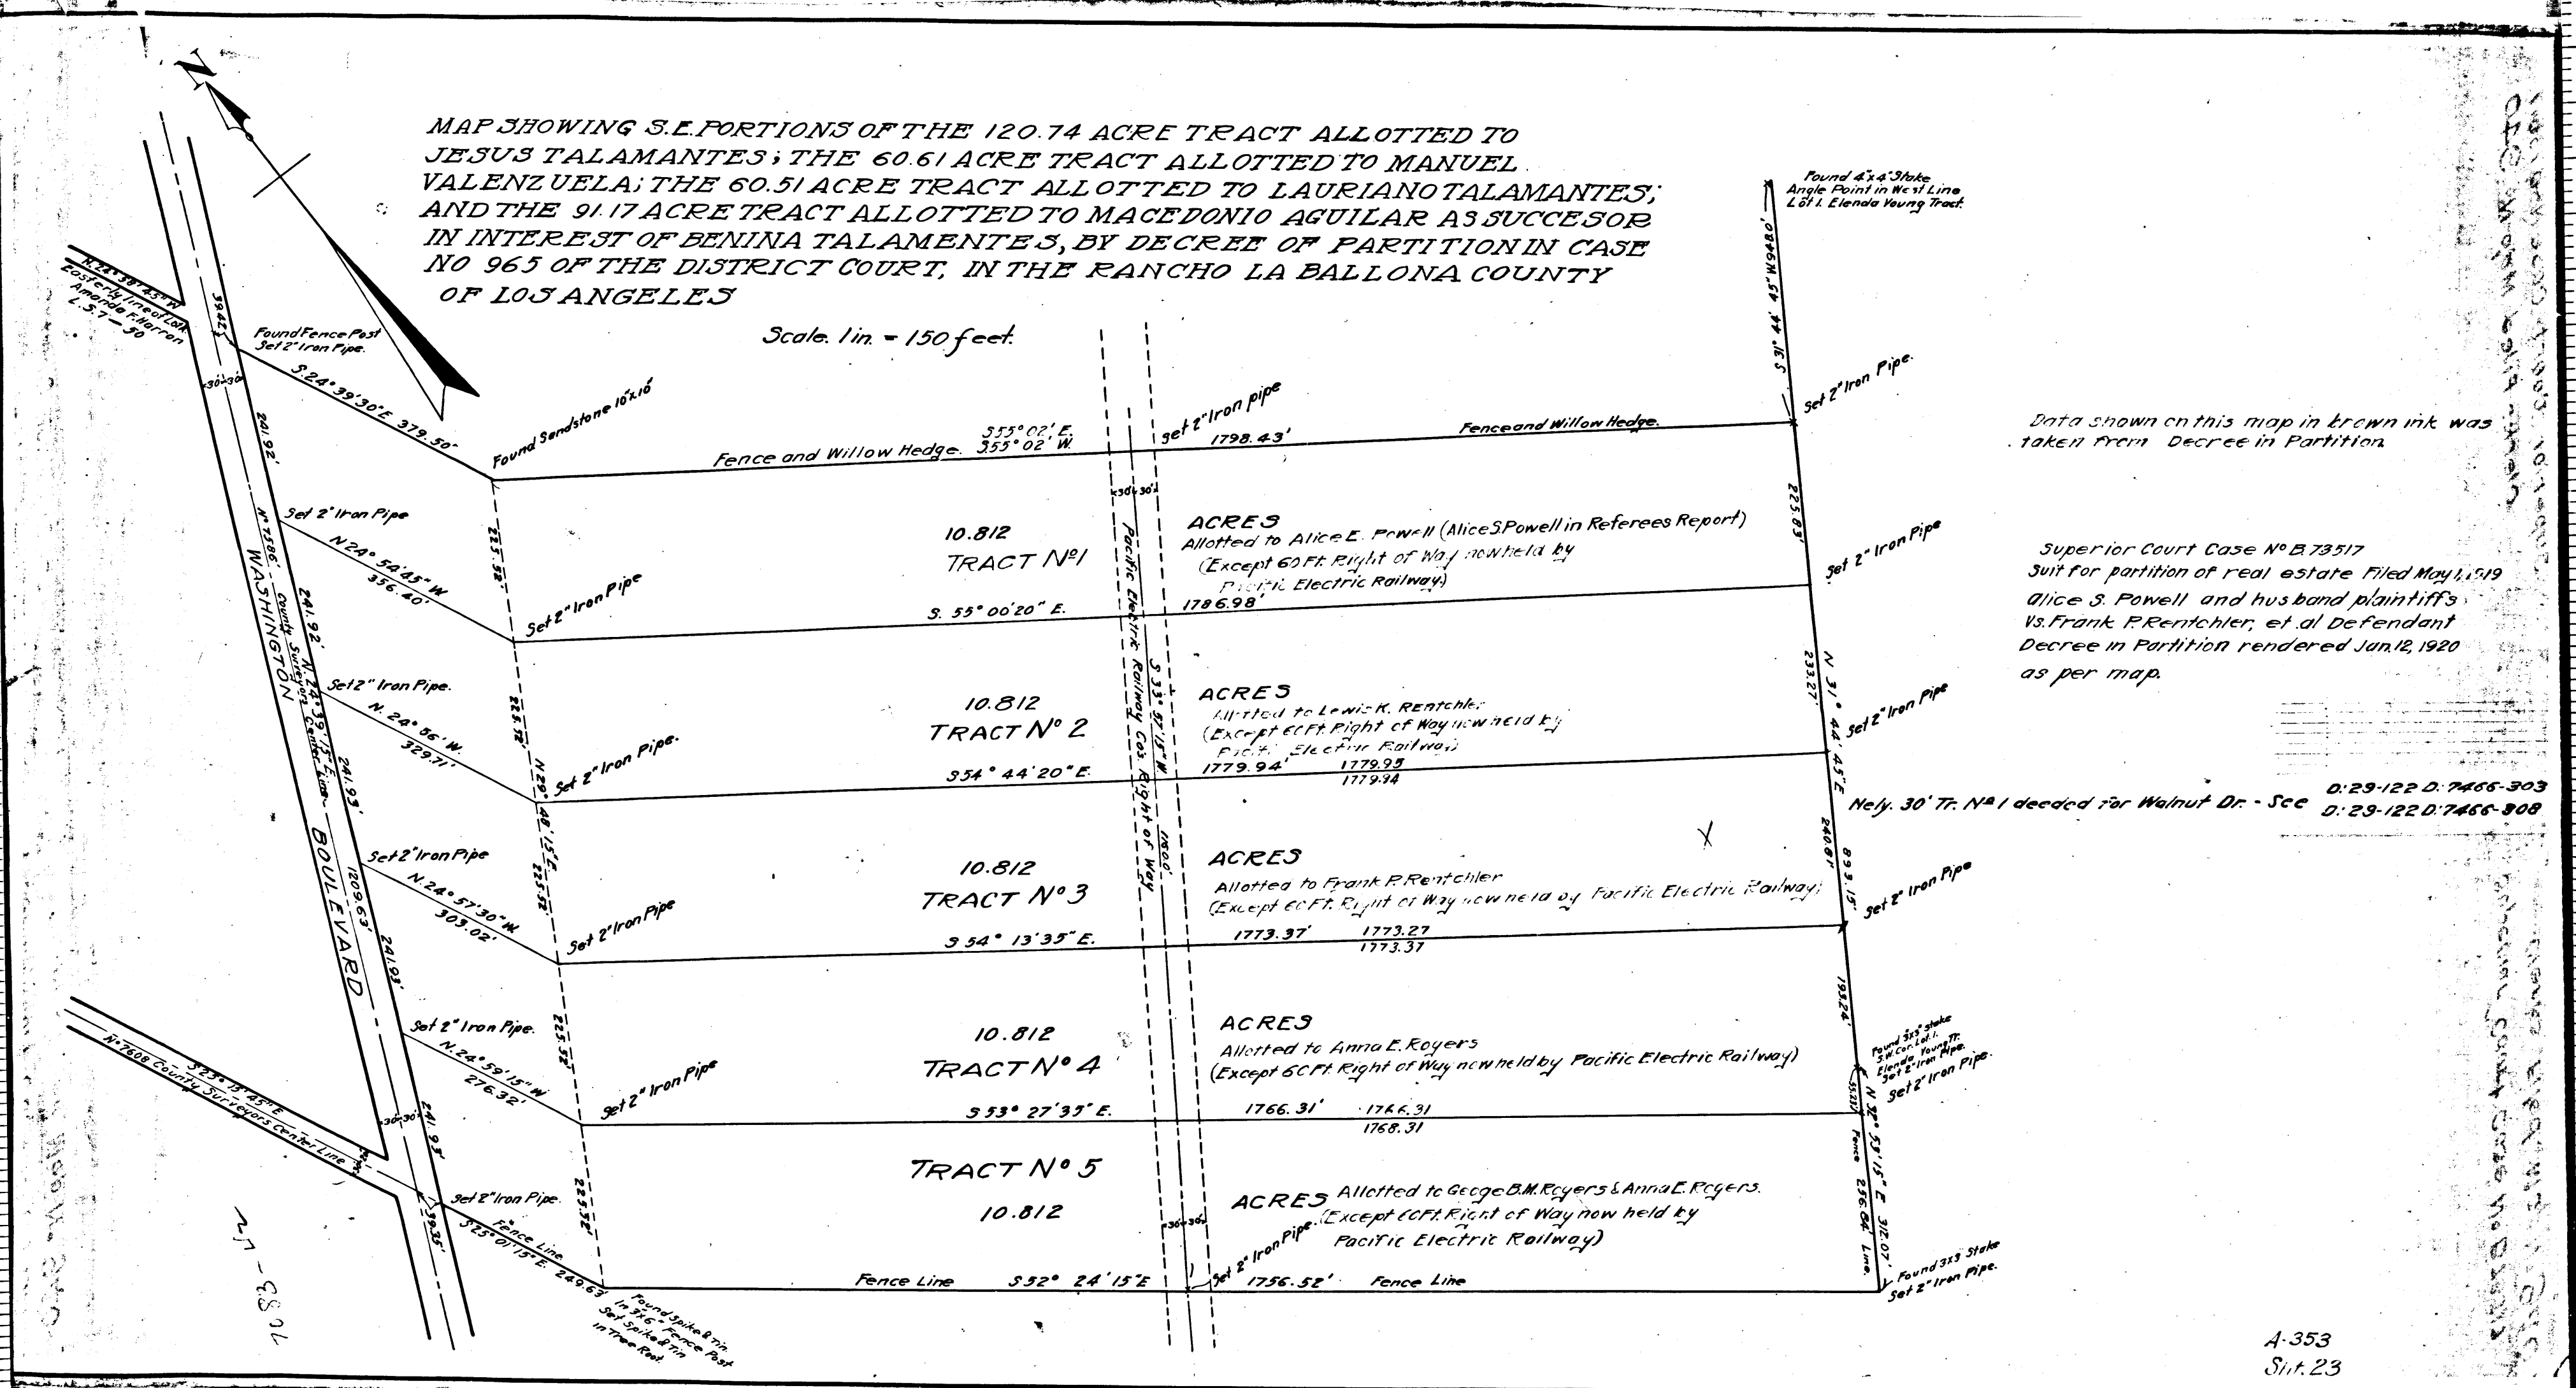 N
MAP SHOWING S.E. PORTIONS OF THE 120.74 ACRE TRACT ALLOTTED TO
JESUS TALAMANTES; THE 60.61 ACRE TRACT ALLOTTED TO MANUEL
VALENZUELA; THE 60.51 ACRE TRACT ALLOTTED TO LAURIANO TALAMANTES;
AND THE 91.17 ACRE TRACT ALLOTTED TO MACEDONIO AGUILAR AS SUCCESOR
IN INTEREST OF BENINA TALAMENTES, BY DECREE OF PARTITION IN CASE
NO 965 OF THE DISTRICT COURT, IN THE RANCHO LA BALLONA COUNTY
OF LOS ANGELES
Scale. 1in. = 150 feet.
Found 4"x4" Stake
Angle Point in West Line
Lot 1. Elenda Young Tract.
S 31° 44' 45" W 948.0'
Easterly line of Lot
Amanda F. Harron
L.S. 7-50
39.42
Found Fence Post
Set 2" Iron Pipe.
30' 30'
S. 24° 39' 30" E 379.50'
Found Sandstone 10"x10"
Fence and Willow Hedge.
S55° 02' E.
S55° 02' W.
set 2" Iron pipe
1798.43'
Fence and Willow Hedge.
Set 2" Iron Pipe.
Data shown on this map in brown ink was
taken from Decree in Partition
241.92'
Set 2" Iron Pipe
N 24° 54' 45" W
356.40'
225.52'
Set 2" Iron Pipe
30' 30'
10.812
ACRES
TRACT Nº 1
Allotted to Alice E. Powell (Alice S. Powell in Referees Report)
(Except 60 Ft. Right of Way now held by
Pacific Electric Railway)
S. 55° 00' 20" E.
1786.98'
225.83'
Set 2" Iron Pipe
Superior Court Case Nº B.73517
Suit for partition of real estate Filed May 1, 1919
Alice S. Powell and husband plaintiffs
Vs. Frank P. Rentchler, et al Defendant
Decree in Partition rendered Jan. 12, 1920
as per map.
Nº 7586 County Surveyors Center Line
WASHINGTON BOULEVARD
241.92' N 24° 39' 15" E
1209.63'
Set 2" Iron Pipe.
N. 24° 56' W.
329.71'
225.52'
Set 2" Iron Pipe.
10.812
ACRES
TRACT Nº 2
Allotted to Lewis K. Rentchler
(Except 60 Ft. Right of Way now held by
Pacific Electric Railway)
S54° 44' 20" E.
1779.94'
1779.95
1779.94
233.27'
Set 2" Iron Pipe
Pacific Electric Railway Cos. Right of Way
N 31° 44' 45" E
899.15'
Nely. 30' Tr. Nº 1 deeded for Walnut Dr. - See
D: 29-122 D: 7466-303
D: 29-122 D: 7466-308
241.93'
Set 2" Iron Pipe
N. 24° 57' 30" W.
303.02'
225.52'
Set 2" Iron Pipe
10.812
ACRES
TRACT Nº 3
Allotted to Frank P. Rentchler
(Except 60 Ft. Right of Way now held by Pacific Electric Railway)
S 54° 13' 35" E.
1773.37'
1773.27
1773.37
240.81'
Set 2" Iron Pipe
241.93'
Set 2" Iron Pipe.
N. 24° 59' 15" W
276.32'
225.52'
Set 2" Iron Pipe
10.812
ACRES
TRACT Nº 4
Allotted to Anna E. Royers
(Except 60 Ft. Right of Way now held by Pacific Electric Railway)
S 53° 27' 35" E.
1766.31'
1766.31
1768.31
Found 3x3" Stake
S.W. Cor. Lot 1.
Elenda Young Tr.
Set 2" Iron Pipe.
Set 2" Iron Pipe.
S 25° 15' 45" E
Nº 7608 County Surveyors Center Line
30' 30'
241.93'
Set 2" Iron Pipe.
Fence Line
S 25° 01' 15" E. 249.63'
39.35'
225.52'
TRACT Nº 5
10.812
ACRES
Allotted to Geoge B.M. Royers & Anna E. Rogers.
(Except 60 Ft. Right of Way now held by
Pacific Electric Railway)
30' 30'
Fence 256.84' Line.
N 32° 59' 15" E 312.07'
Fence Line
S52° 24' 15" E
Set 2" Iron Pipe.
1756.52'
Fence Line
Found 3x3 Stake
Set 2" Iron Pipe.
Found Spike & Tin
In 3"x6" Fence Post
Set Spike & Tin
In Tree Root.
A-353
Sht. 23